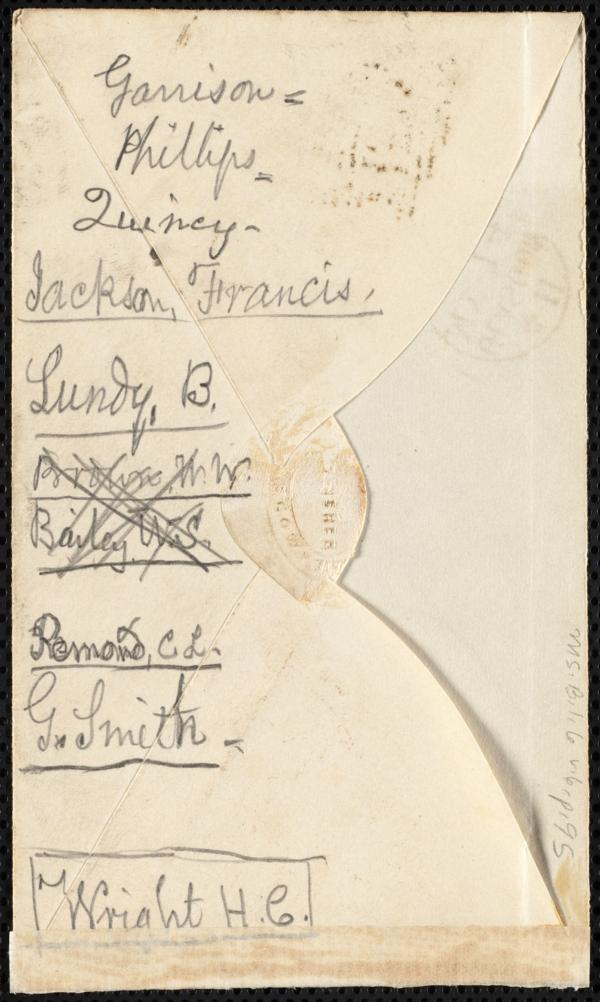 Garrison =
Phillips =
Quincy -
Jackson, Francis.
Lundy, B.
Brown, W. W.
Bailey, W. S.
Remond, C. L.
G. Smith -
Wright H. C.